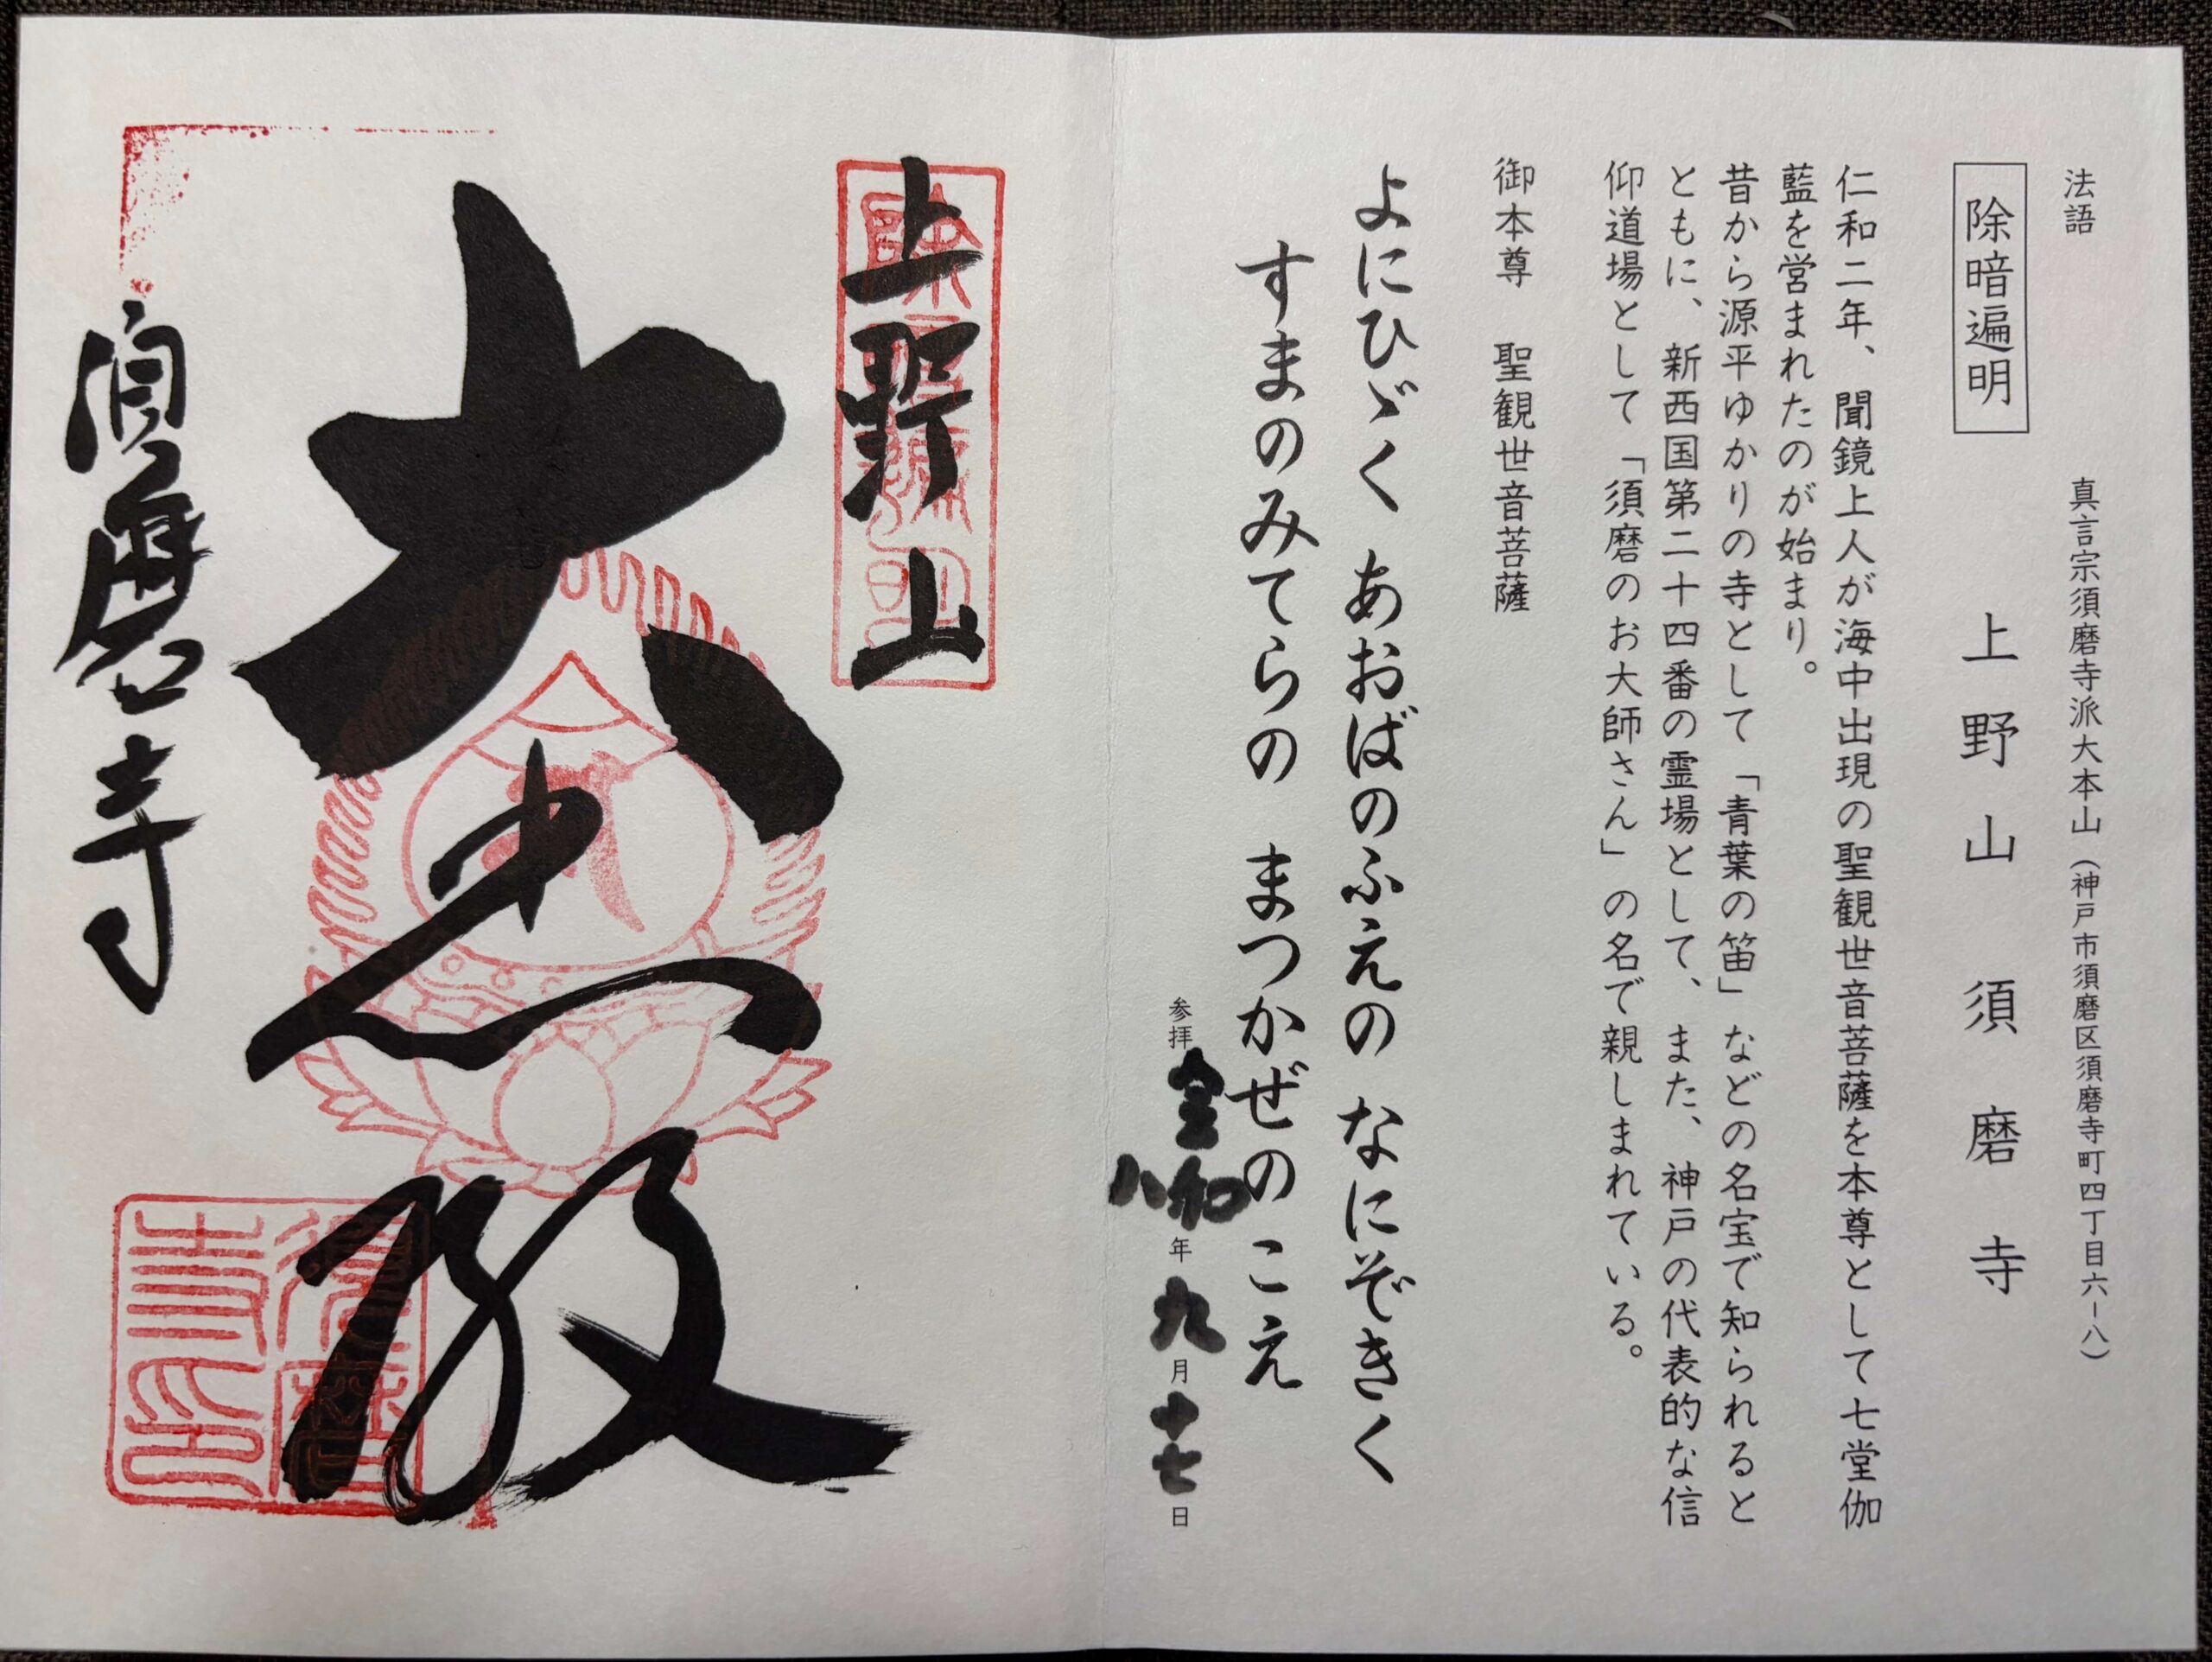 法語
真言宗須磨寺派大本山（神戸市須磨区須磨寺町四丁目六ー八）
除暗遍明
上野山 須磨寺
仁和二年、聞鏡上人が海中出現の聖観世音菩薩を本尊として七堂伽
藍を営まれたのが始まり。
昔から源平ゆかりの寺として「青葉の笛」などの名宝で知られると
ともに、新西国第二十四番の霊場として、また、神戸の代表的な信
仰道場として「須磨のお大師さん」の名で親しまれている。
御本尊 聖観世音菩薩
よにひゞく あおばのふえの なにぞきく
すまのみてらの まつかぜのこえ
参拝 令和八年九月十七日
上野山
大悲殿
須磨寺
須磨寺印